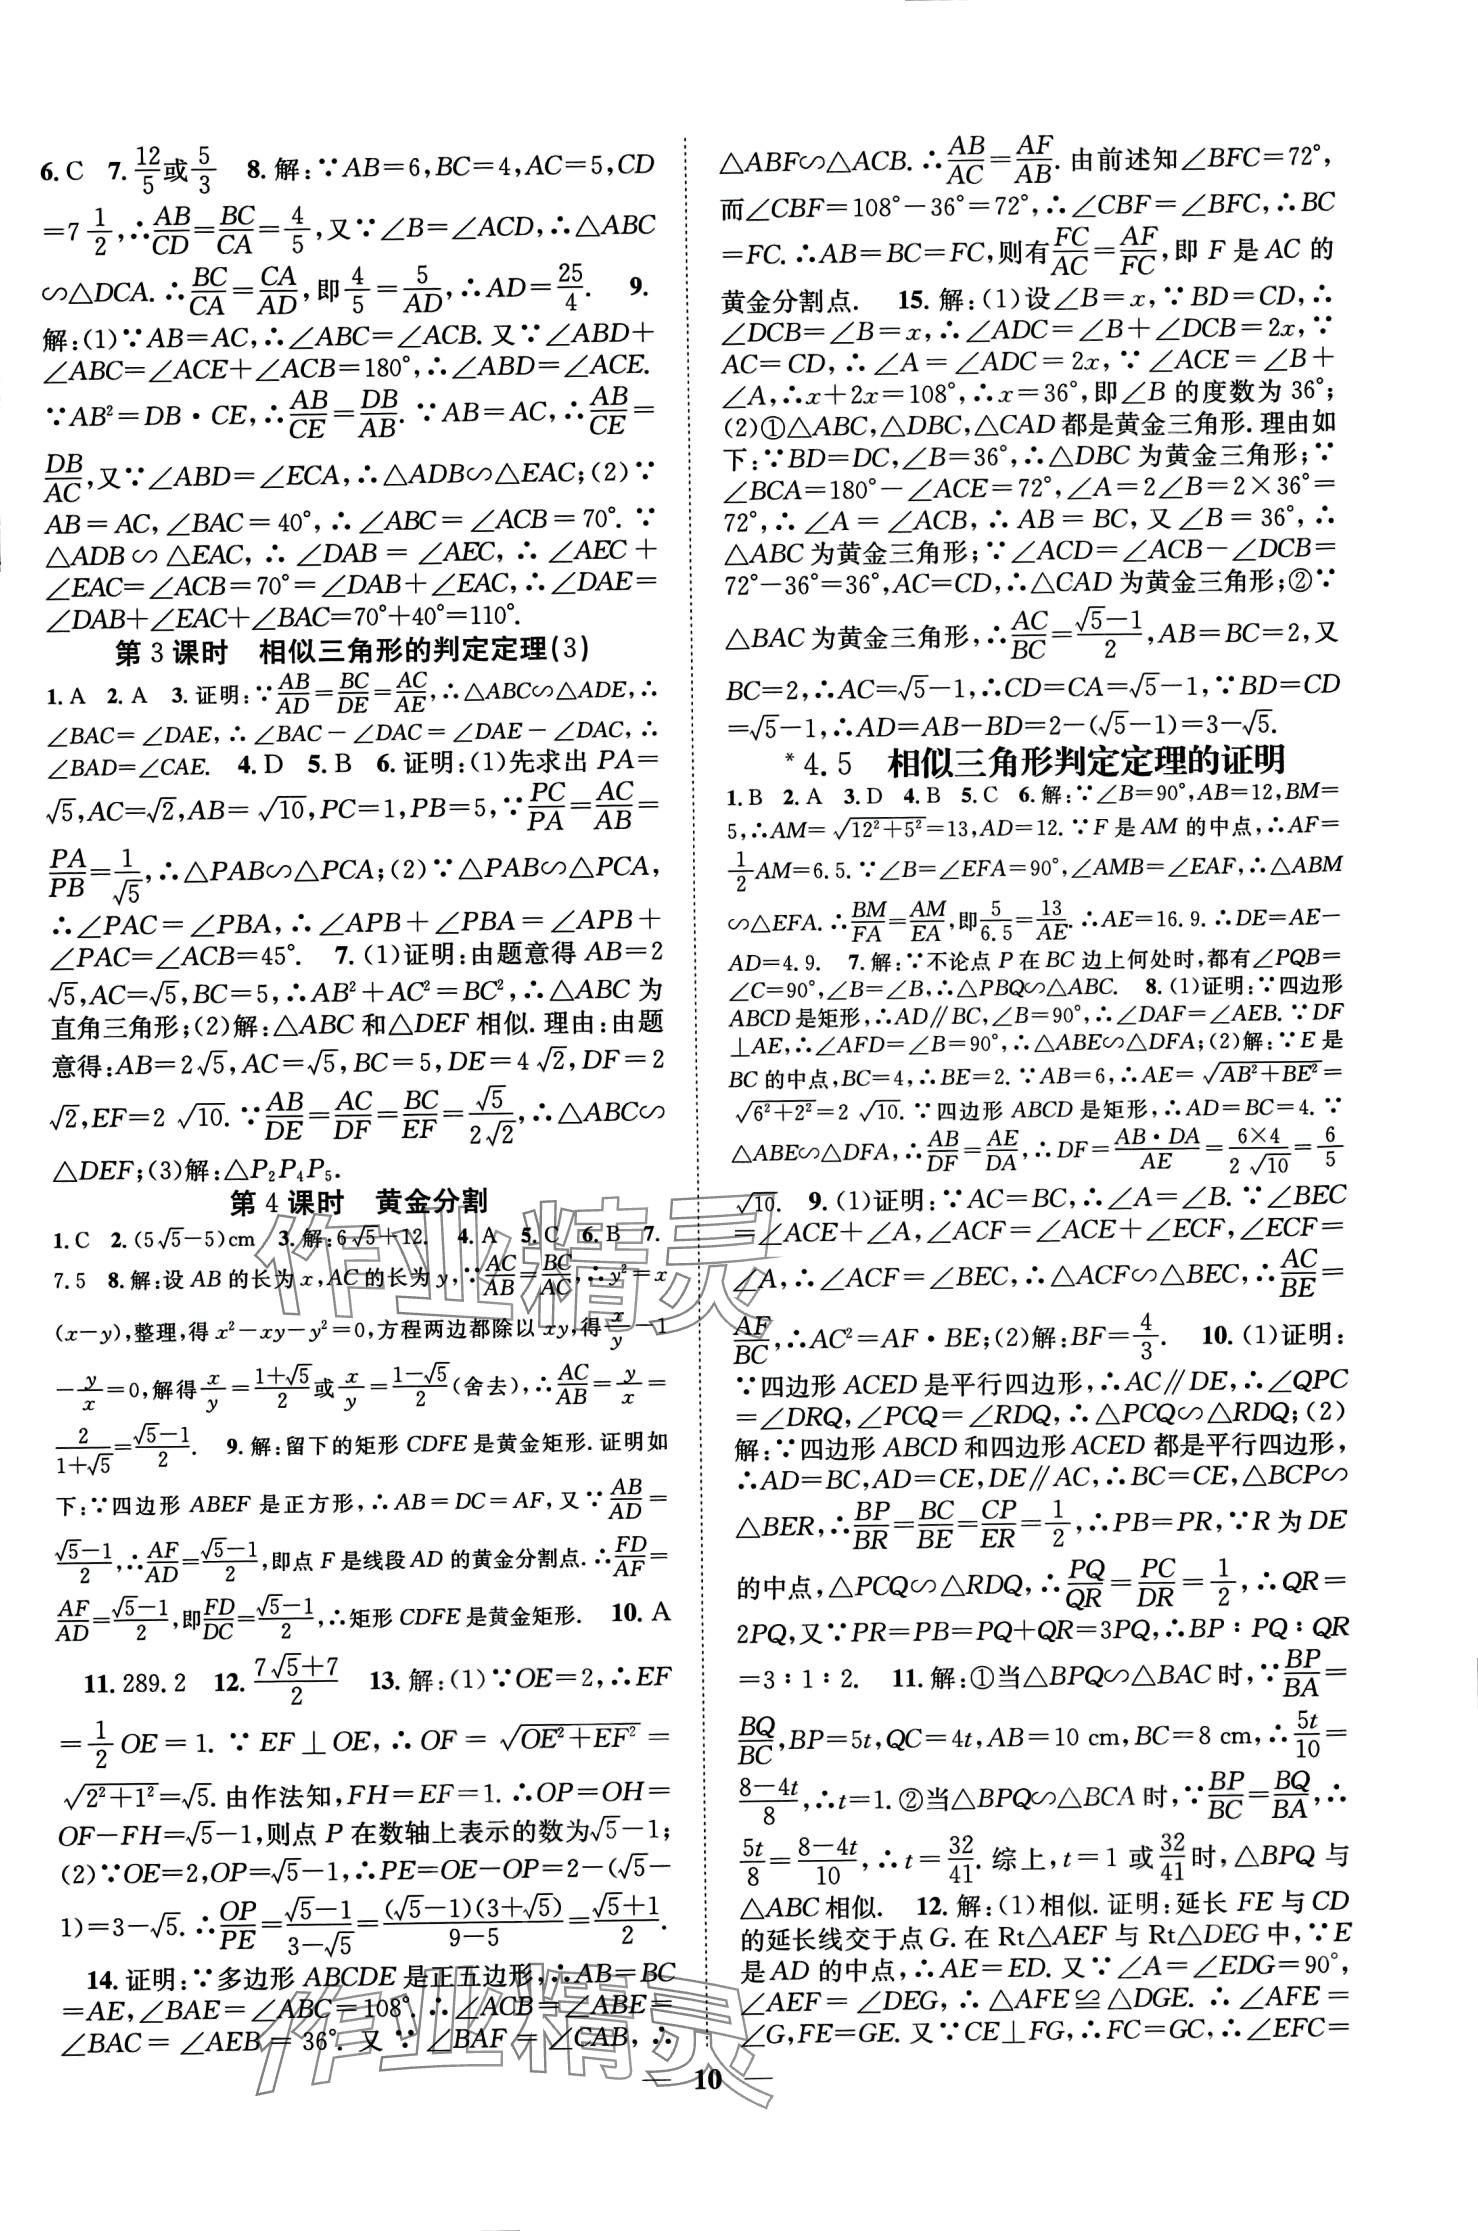 6. C 7. 12/5 或 5/3 8. 解:∵AB=6,BC=4,AC=5,CD
=7 1/2,∴AB/CD=BC/CA=4/5,又∵∠B=∠ACD,∴△ABC
∽△DCA.∴BC/CA=CA/AD,即4/5=5/AD,∴AD=25/4. 9.
解:(1)∵AB=AC,∴∠ABC=∠ACB.又∵∠ABD+
∠ABC=∠ACE+∠ACB=180°,∴∠ABD=∠ACE.
∵AB²=DB·CE,∴AB/CE=DB/AB.∵AB=AC,∴AB/CE=
DB/AC,又∵∠ABD=∠ECA,∴△ADB∽△EAC;(2)∵
AB=AC,∠BAC=40°,∴∠ABC=∠ACB=70°.∵
△ADB∽△EAC,∴∠DAB=∠AEC,∴∠AEC+
∠EAC=∠ACB=70°=∠DAB+∠EAC,∴∠DAE=
∠DAB+∠EAC+∠BAC=70°+40°=110°.
第3课时 相似三角形的判定定理(3)
1. A 2. A 3. 证明:∵AB/AD=BC/DE=AC/AE,∴△ABC∽△ADE,∴
∠BAC=∠DAE,∴∠BAC-∠DAC=∠DAE-∠DAC,∴
∠BAD=∠CAE. 4. D 5. B 6. 证明:(1)先求出PA=
√5,AC=√2,AB=√10,PC=1,PB=5,∵PC/PA=AC/AB=
PA/PB=1/√5,∴△PAB∽△PCA;(2)∵△PAB∽△PCA,
∴∠PAC=∠PBA,∴∠APB+∠PBA=∠APB+
∠PAC=∠ACB=45°. 7. (1)证明:由题意得AB=2
√5,AC=√5,BC=5,∴AB²+AC²=BC²,∴△ABC为
直角三角形;(2)解:△ABC和△DEF相似.理由:由题
意得:AB=2√5,AC=√5,BC=5,DE=4√2,DF=2
√2,EF=2√10.∵AB/DE=AC/DF=BC/EF=√5/2√2,∴△ABC∽
△DEF;(3)解:△P₂P₄P₅.
第4课时 黄金分割
1. C 2. (5√5-5)cm 3. 解:6√5+12. 4. A 5. C 6. B 7.
7.5 8. 解:设AB的长为x,AC的长为y,∵AC/AB=BC/AC,∴y²=x
(x-y),整理,得x²-xy-y²=0,方程两边都除以xy,得x/y-1
-y/x=0,解得x/y=(1+√5)/2或x/y=(1-√5)/2(舍去),∴AC/AB=y/x=
2/(1+√5)=(√5-1)/2. 9. 解:留下的矩形CDFE是黄金矩形.证明如
下:∵四边形ABEF是正方形,∴AB=DC=AF,又∵AB/AD=
(√5-1)/2,∴AF/AD=(√5-1)/2,即点F是线段AD的黄金分割点.∴FD/AF=
AF/AD=(√5-1)/2,即FD/DC=(√5-1)/2,∴矩形CDFE是黄金矩形. 10. A
11. 289.2 12. (7√5+7)/2 13. 解:(1)∵OE=2,∴EF
=1/2 OE=1.∵EF⊥OE,∴OF=√(OE²+EF²)=
√(2²+1²)=√5.由作法知,FH=EF=1.∴OP=OH=
OF-FH=√5-1,则点P在数轴上表示的数为√5-1;
(2)∵OE=2,OP=√5-1,∴PE=OE-OP=2-(√5-
1)=3-√5.∴OP/PE=(√5-1)/(3-√5)=(√5-1)(3+√5)/(9-5)=(√5+1)/2.
14. 证明:∵多边形ABCDE是正五边形,∴AB=BC
=AE,∠BAE=∠ABC=108°.∴∠ACB=∠ABE=
∠BAC=∠AEB=36°.又∵∠BAF=∠CAB,∴
△ABF∽△ACB.∴AB/AC=AF/AB.由前述知∠BFC=72°,
而∠CBF=108°-36°=72°,∴∠CBF=∠BFC,∴BC
=FC.∴AB=BC=FC,则有FC/AC=AF/FC,即F是AC的
黄金分割点. 15. 解:(1)设∠B=x,∵BD=CD,∴
∠DCB=∠B=x,∴∠ADC=∠B+∠DCB=2x,∵
AC=CD,∴∠A=∠ADC=2x,∵∠ACE=∠B+
∠A,∴x+2x=108°,∴x=36°,即∠B的度数为36°;
(2)①△ABC,△DBC,△CAD都是黄金三角形.理由如
下:∵BD=DC,∠B=36°,∴△DBC为黄金三角形;∵
∠BCA=180°-∠ACE=72°,∠A=2∠B=2×36°=
72°,∴∠A=∠ACB,∴AB=BC,又∠B=36°,∴
△ABC为黄金三角形;∵∠ACD=∠ACB-∠DCB=
72°-36°=36°,AC=CD,∴△CAD为黄金三角形;②∵
△BAC为黄金三角形,∴AC/BC=(√5-1)/2,AB=BC=2,又
BC=2,∴AC=√5-1,∴CD=CA=√5-1,∵BD=CD
=√5-1,∴AD=AB-BD=2-(√5-1)=3-√5.
*4.5 相似三角形判定定理的证明
1. B 2. A 3. D 4. B 5. C 6. 解:∵∠B=90°,AB=12,BM=
5,∴AM=√(12²+5²)=13,AD=12.∵F是AM的中点,∴AF=
1/2 AM=6.5.∵∠B=∠EFA=90°,∠AMB=∠EAF,∴△ABM
∽△EFA.∴BM/FA=AM/EA,即5/6.5=13/AE.∴AE=16.9.∴DE=AE-
AD=4.9. 7. 解:∵不论点P在BC边上何处时,都有∠PQB=
∠C=90°,∠B=∠B,∴△PBQ∽△ABC. 8. (1)证明:∵四边形
ABCD是矩形,∴AD∥BC,∠B=90°,∴∠DAF=∠AEB.∵DF
⊥AE,∴∠AFD=∠B=90°,∴△ABE∽△DFA;(2)解:∵E是
BC的中点,BC=4,∴BE=2.∵AB=6,∴AE=√(AB²+BE²)=
√(6²+2²)=2√10.∵四边形ABCD是矩形,∴AD=BC=4.∵
△ABE∽△DFA,∴AB/DF=AE/DA,∴DF=AB·DA/AE=6×4/2√10=6/5
√10. 9. (1)证明:∵AC=BC,∴∠A=∠B.∵∠BEC
=∠ACE+∠A,∠ACF=∠ACE+∠ECF,∠ECF=
∠A,∴∠ACF=∠BEC,∴△ACF∽△BEC,∴AC/BE=
AF/BC,∴AC²=AF·BE;(2)解:BF=4/3. 10. (1)证明:
∵四边形ACED是平行四边形,∴AC∥DE,∴∠QPC
=∠DRQ,∠PCQ=∠RDQ,∴△PCQ∽△RDQ;(2)
解:∵四边形ABCD和四边形ACED都是平行四边形,
∴AD=BC,AD=CE,DE∥AC,∴BC=CE,△BCP∽
△BER,∴BP/BR=BC/BE=CP/ER=1/2,∴PB=PR,∵R为DE
的中点,△PCQ∽△RDQ,∴PQ/QR=PC/DR=1/2,∴QR=
2PQ,又∵PR=PB=PQ+QR=3PQ,∴BP∶PQ∶QR
=3∶1∶2. 11. 解:①当△BPQ∽△BAC时,∵BP/BA=
BQ/BC,BP=5t,QC=4t,AB=10 cm,BC=8 cm,∴5t/10=
(8-4t)/8,∴t=1.②当△BPQ∽△BCA时,∵BP/BC=BQ/BA,∴
5t/8=(8-4t)/10,∴t=32/41.综上,t=1或32/41时,△BPQ与
△ABC相似. 12. 解:(1)相似.证明:延长FE与CD
的延长线交于点G.在Rt△AEF与Rt△DEG中,∵E
是AD的中点,∴AE=ED.又∵∠A=∠EDG=90°,
∠AEF=∠DEG,∴△AFE≌△DGE.∴∠AFE=
∠G,FE=GE.又∵CE⊥FG,∴FC=GC,∴∠EFC=
— 10 —
作业精灵
作业精灵